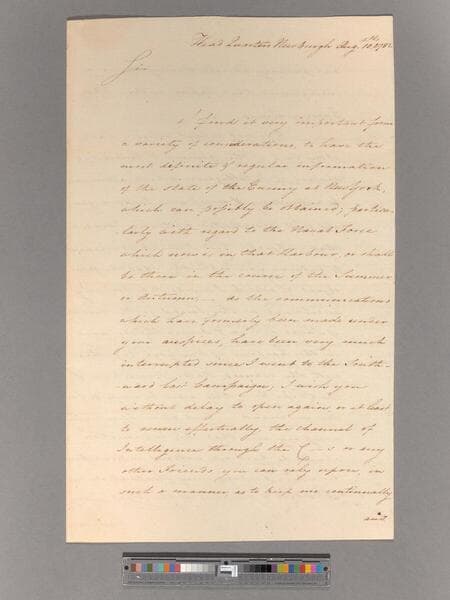 Head Quarters Newburgh Aug. 10th 1782
Sir
I find it very important from
a variety of considerations, to have the
most definite & regular information
of the state of the Enemy at New York,
which can possibly be obtained; particu-
larly with regard to the Naval Force
which now is in that Harbour, or shall
be there in the course of the Summer
or Autumn. — As the communications
which have formerly been made under
your auspices, have been very much
interrupted since I went to the South-
ward last Campaign; I wish you
without delay to open again, or at least
to renew effectually the channel of
Intelligence through the C—s or any
other Friends you can rely upon, in
such a manner as to keep me continually
and